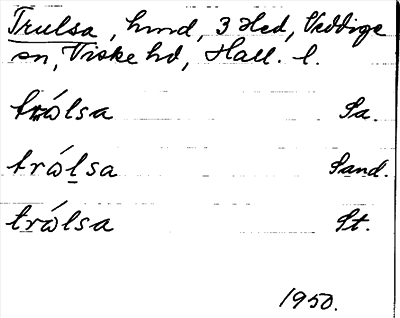 Trulsa, hmd, 3 Hed, Veddige
sn, Viske hd, Hall. l.
trólsa Sa.
trólsa Sand.
trólsa St.
1950.